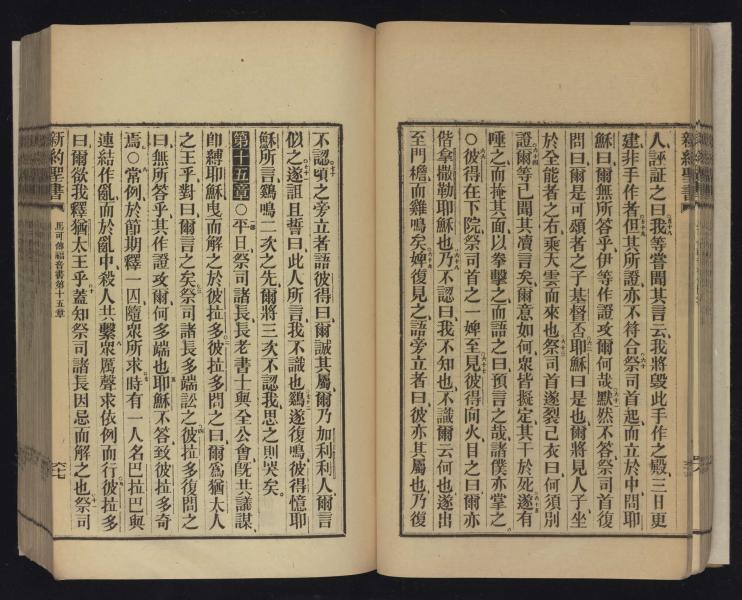 新約聖書
人誣証之曰我等嘗聞其言云我將毀此手作之殿三日更
建非手作者但其所證亦不符合祭司首起而立於中問耶
穌曰爾無所答乎伊等作證攻爾何哉默然不答祭司首復
問曰爾是可頌者之子基督否耶穌曰是也爾將見人子坐
於全能者之右乘天雲而來也祭司首遂裂己衣曰何須別
證爾等已聞其凟言矣爾意如何衆皆擬定其干於死遂有
唾之而掩其面以拳擊之而語之曰預言之哉諸僕亦掌之
○彼得在下院祭司首之一婢至見彼得向火目之曰爾亦
偕拿撒勒耶穌也乃不認曰我不知也不識爾云何也遂出
至門檐而雞鳴矣婢復見之語旁立者曰彼亦其屬也乃復
不認頃之旁立者語彼得曰爾誠其屬爾乃加利利人爾言
似之遂詛且誓曰此人所言我不識也鷄遂復鳴彼得憶耶
穌所言鷄鳴二次之先爾將三次不認我思之則哭矣
第十五章○平旦祭司諸長長老書士與全公會既共議謀
卽縛耶穌曳而解之於彼拉多彼拉多問之曰爾爲猶太人
之王乎對曰爾言之矣祭司諸長多端訟之彼拉多復問之
曰無所答乎其作證攻爾何多端也耶穌不答致彼拉多奇
焉○常例於節期釋一囚隨衆所求時有一人名巴拉巴與
連結作亂而於亂中殺人共繫衆厲聲求依例而行彼拉多
曰爾欲我釋猶太王乎蓋知祭司諸長因忌而解之也祭司
新約聖書
馬可傳福音書第十五章
六十七